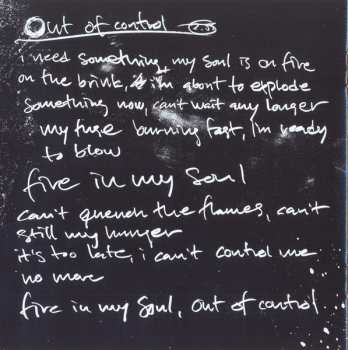 Out of control 2:05
i need something, my soul is on fire
on the brink, & i'm about to explode
something now, can't wait any longer
my fuse burning fast, I'm ready
to blow
fire in my soul
can't quench the flames, can't
still my hunger
it's too late, i can't control me
no more
fire in my soul, out of control